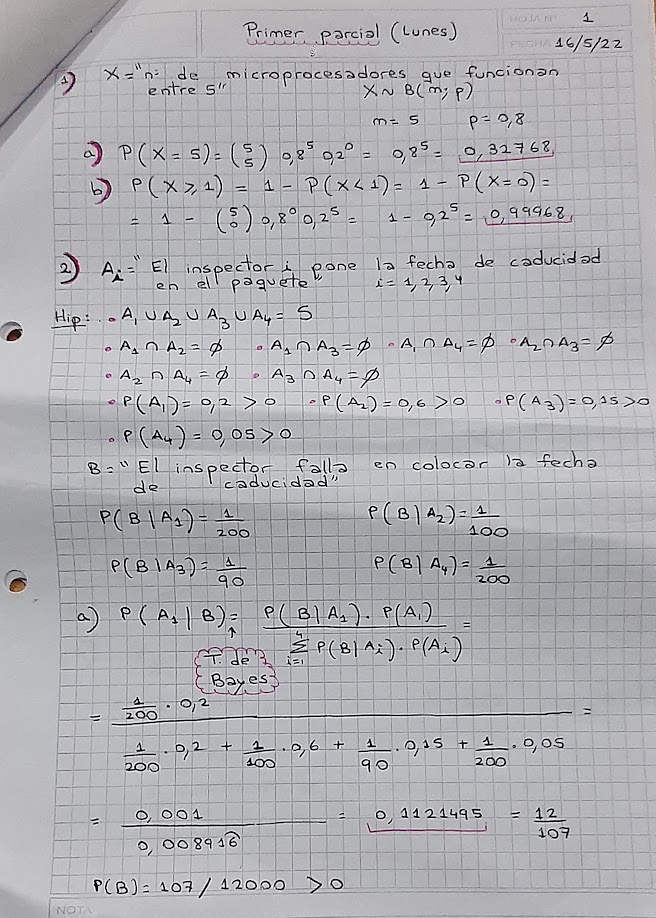 HOJA Nº 1
Primer parcial (Lunes)
FECHA 16/5/22
1) X = "nº de microprocesadores que funcionan
entre 5" X ~ B(m; p)
m = 5 p = 0,8
a) P(X = 5) = (5 5) 0,8⁵ 0,2⁰ = 0,8⁵ = 0,32768
b) P(X ⩾ 1) = 1 - P(X < 1) = 1 - P(X = 0) =
= 1 - (5 0) 0,8⁰ 0,2⁵ = 1 - 0,2⁵ = 0,99968
2) Ai = "El inspector i pone la fecha de caducidad
en el paquete" i = 1, 2, 3, 4
Hip: • A₁ ∪ A₂ ∪ A₃ ∪ A₄ = S
• A₁ ∩ A₂ = ∅ • A₁ ∩ A₃ = ∅ • A₁ ∩ A₄ = ∅ • A₂ ∩ A₃ = ∅
• A₂ ∩ A₄ = ∅ • A₃ ∩ A₄ = ∅
• P(A₁) = 0,2 > 0 • P(A₂) = 0,6 > 0 • P(A₃) = 0,15 > 0
• P(A₄) = 0,05 > 0
B = "El inspector falla en colocar la fecha
de caducidad"
P(B | A₁) = 1/200 P(B | A₂) = 1/100
P(B | A₃) = 1/90 P(B | A₄) = 1/200
a) P(A₁ | B) = P(B | A₁) . P(A₁) =
4 Σ i=1 P(B | Ai) . P(Ai)
↑
T. de
Bayes
= 1/200 . 0,2 =
1/200 . 0,2 + 1/100 . 0,6 + 1/90 . 0,15 + 1/200 . 0,05
= 0,001 = 0,1121495 = 12/107
0,008916̂
P(B) = 107 / 12000 > 0
NOTA